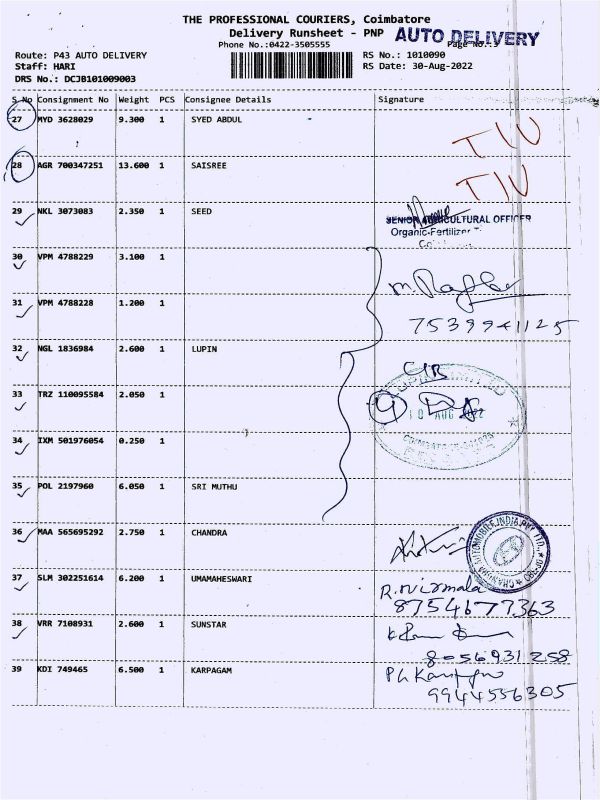 THE PROFESSIONAL COURIERS, Coimbatore
Delivery Runsheet - PNP AUTO DELIVERY
Phone No.:0422-3505555
Route: P43 AUTO DELIVERY RS No.: 1010090
Staff: HARI RS Date: 30-Aug-2022
DRS No.: DCJB101009003
S No Consignment No Weight PCS Consignee Details Signature
27 MYD 3628029 9.300 1 SYED ABDUL
28 AGR 700347251 13.600 1 SAISREE
29 NKL 3073083 2.350 1 SEED
SENIOR AGRICULTURAL OFFICER
Organic-Fertilizer
30 VPM 4788229 3.100 1
31 VPM 4788228 1.200 1
7539941125
32 NGL 1836984 2.600 1 LUPIN
33 TRZ 110095584 2.050 1
34 IXM 501976054 0.250 1
35 POL 2197960 6.050 1 SRI MUTHU
36 MAA 565695292 2.750 1 CHANDRA
37 SLM 302251614 6.200 1 UMAMAHESWARI R. Nirmala
8754677363
38 VRR 7108931 2.600 1 SUNSTAR
8056931258
39 KDI 749465 6.500 1 KARPAGAM
9944556305